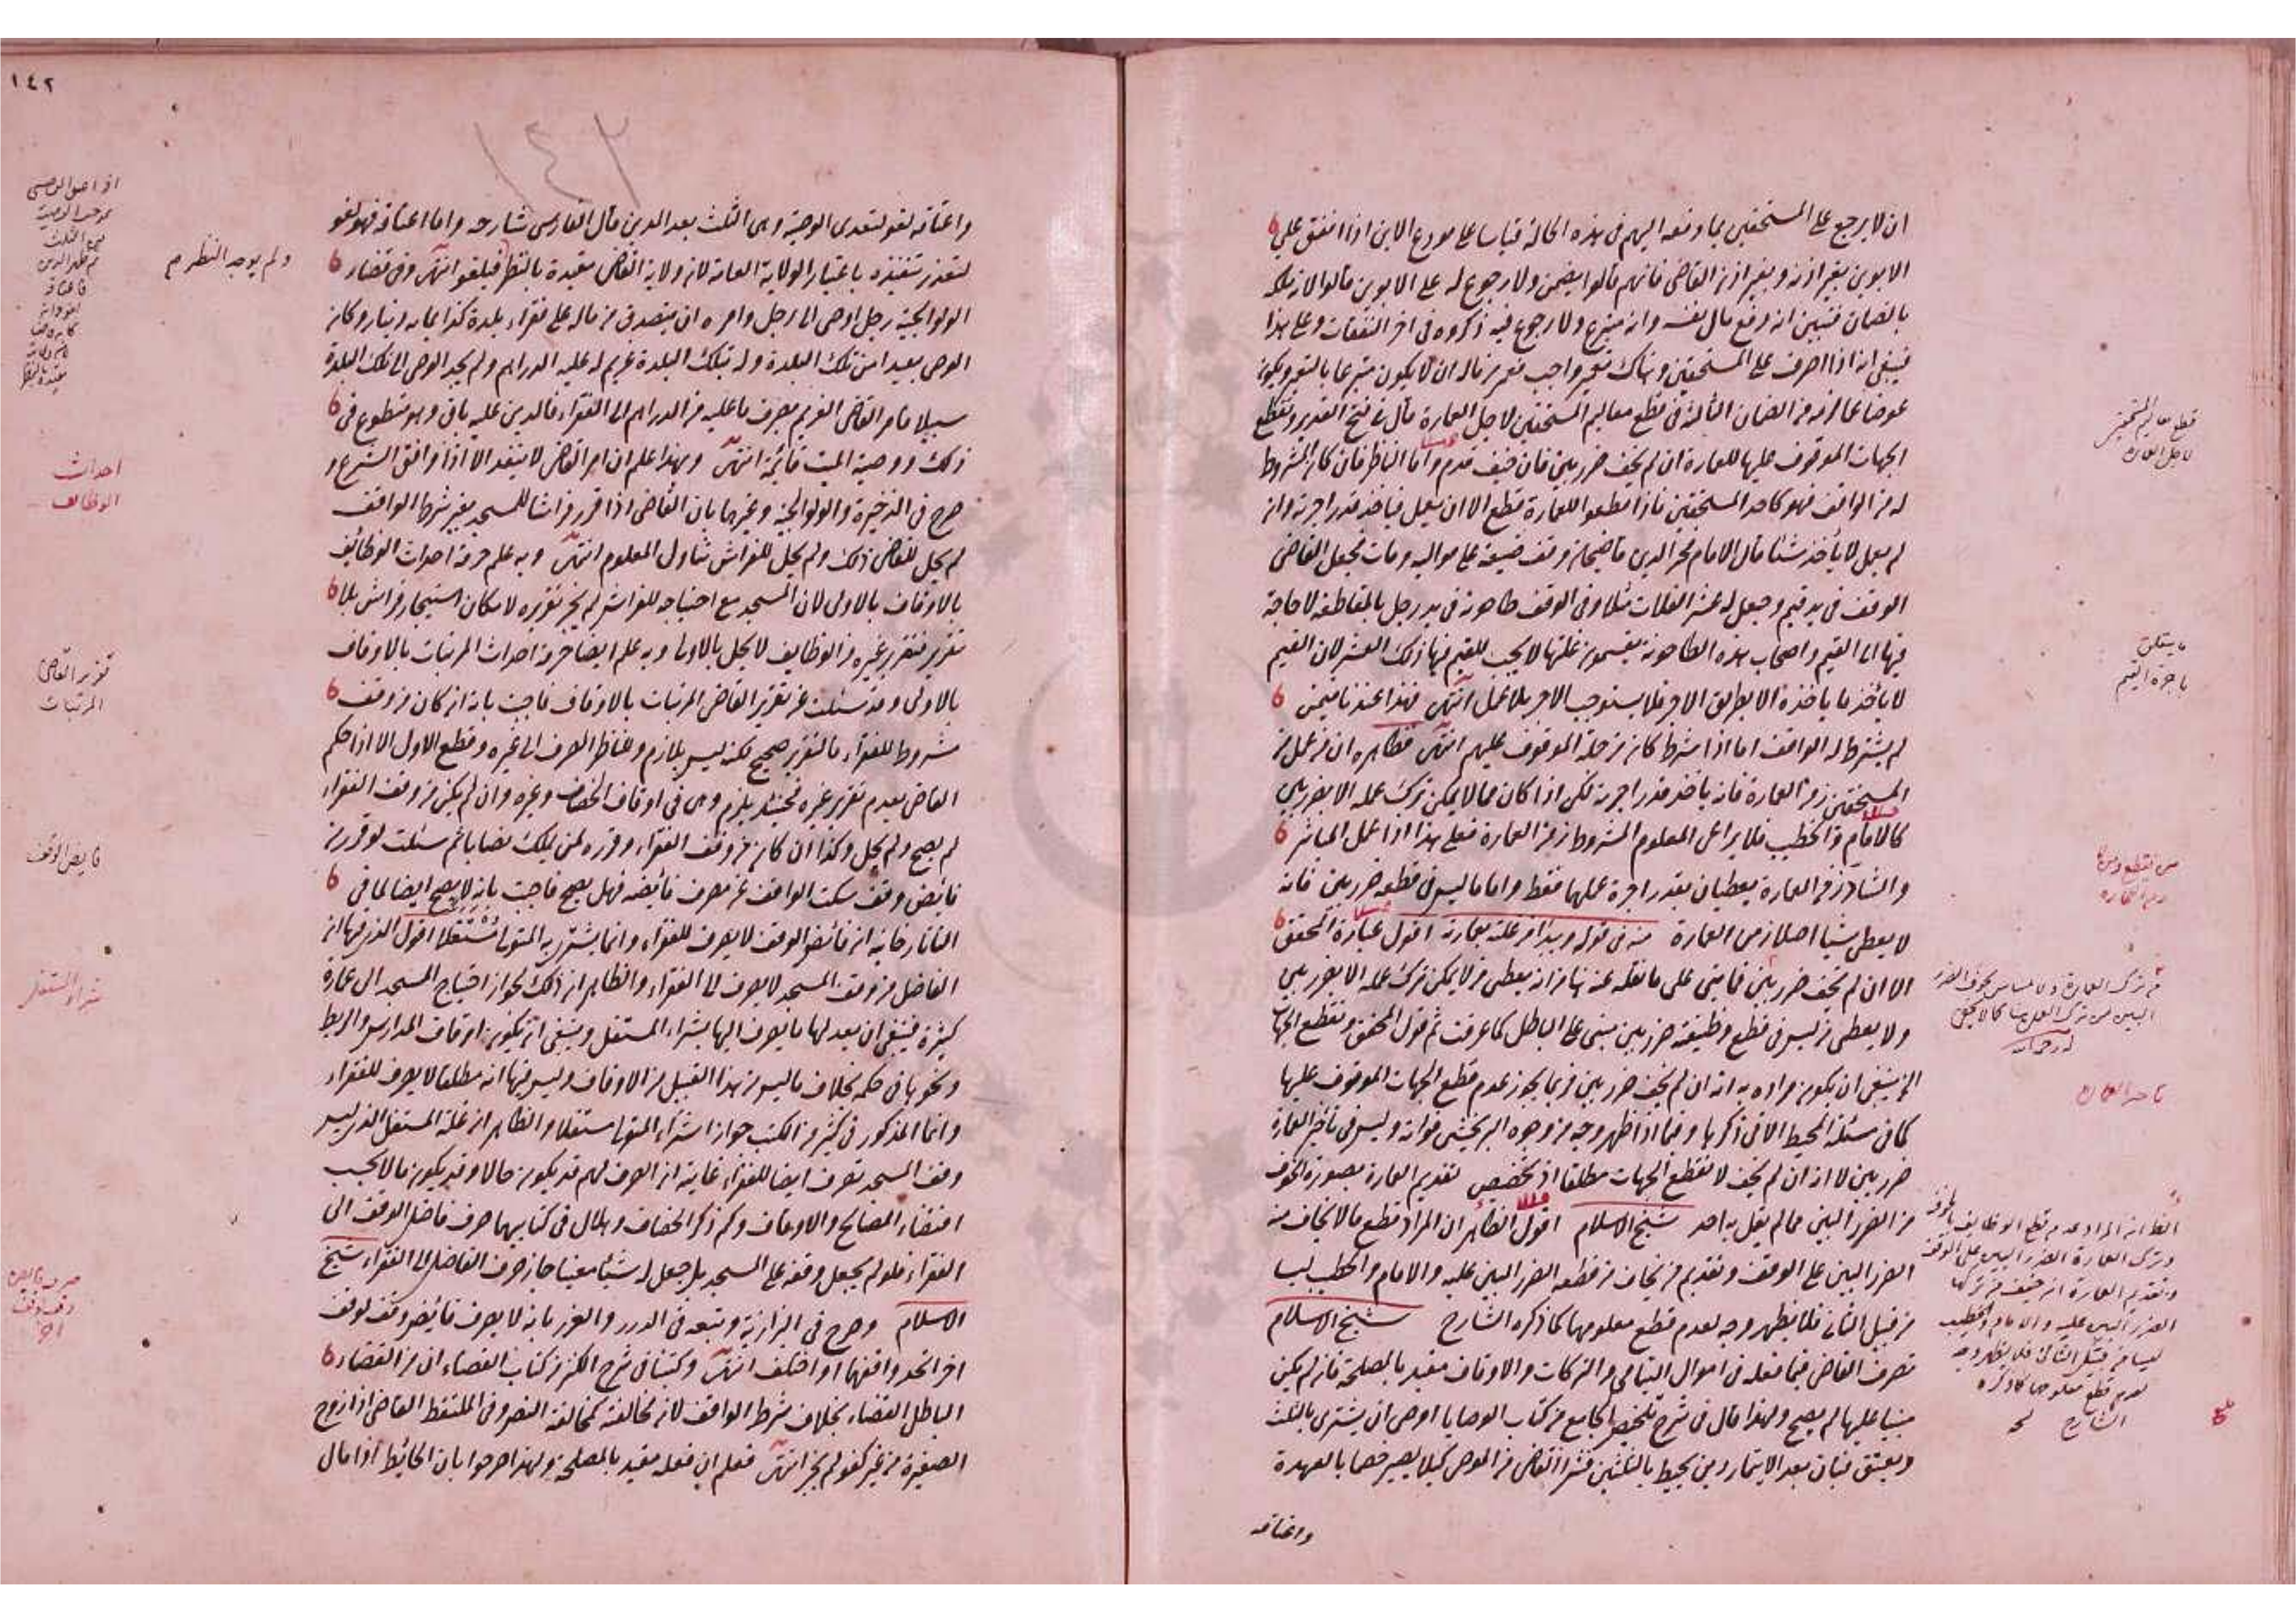 ان لا يرجع على المستحقين بما دفعه اليهم فى هذه الحالة قياسا على مودع الابن اذا انفق على
الابوين بغير اذنه وبغير اذن القاضى فانهم قالوا يضمن ولا رجوع له على الابوين قالوا لانه ملكه
بالضمان فتبين انه دفع مال نفسه وانه متبرع ولا رجوع فيه ذكروه فى اخر النفقات وعلى هذا
فينبغى انه اذا صرف على المستحقين وهناك تعمير واجب فعمر من ماله ان لا يكون متبرعا بالتعمير ويكون
عوضا عما لزمه من الضمان الثالثة فى قطع معاليم المستحقين لاجل العمارة قال فى فتح القدير وتقطع
الجهات الموقوف عليها للعمارة ان لم يخف ضرر بين فان خيف قدم واما الناظر فان كان المشروط
له من الواقف فهو كاحد المستحقين فاذا قطعوا للعمارة قطع الا ان يعمل فياخذ قدر اجرته وان
لم يعمل لا يأخذ شئا قال الامام فخر الدين قاضيخان وقف ضيعة على مواليه ومات فجعل القاضى
الوقف فى يد قيم وجعل له عشر الغلات مثلا وفى الوقف طاحونة فى يد رجل بالمقاطعة لا حاجة
فيها الى القيم واصحاب هذه الطاحونة يقسمون غلتها لا يجب للقيم فيها ذلك العشر لان القيم
لا يأخذ ما ياخذه الا بطريق الاجر فلا يستوجب الاجر بلا عمل انتهى فهذا عندنا فيمن
لم يشترط له الواقف اما اذا شرط كان من جملة الموقوف عليهم انتهى فظاهره ان من عمل من
المستحقين زمن العمارة فانه ياخذ قدر اجرته لكن اذا كان مما لا يمكن ترك عمله الا بضرر بين
كالامام والخطيب فلا يراعى المعلوم المشروط زمن العمارة فعلى هذا اذا عمل المباشر
والشاد زمن العمارة يعطيان بقدر اجرة عملهما فقط واما ما ليس فى قطعه ضرر بين فانه
لا يعطى شيا اصلا زمن العمارة منه فى قوله ويبدا من غلته بعمارته اقول عبارة المحقق
الا ان لم يخف ضرر بين فما بنى على ما نقله عنه هنا من انه يعطى من لا يمكن ترك عمله الا بضرر بين
ولا يعطى من ليس فى قطع وظيفته ضرر بين مبنى على الباطل كما عرفت ثم قول المحقق وتقطع الجهات
الخ ينبغى ان يكون مراده به انه ان لم يخف ضرر بين فربما يجوز عدم قطع الجهات الموقوف عليها
كما فى مسئلة المحيط الاتى ذكرها وفيما اذا ظهر وجه من وجوه البر يخشى فواته وليس فى تأخير العمارة
ضرر بين لا انه ان لم يخف لا تقطع الجهات مطلقا اذ تخصيص تقديم العمارة بصورة الخوف
من الضرر البين مما لم يقل به احد شيخ الاسلام اقول الظاهر ان المراد قطع ما لا يخاف منه
الضرر البين على الوقف وتقديم من يخاف من قطعه الضرر البين عليه والامام والخطيب ليسا
من قبيل الثانى فلا يظهر وجه لعدم قطع معلومهما كما ذكره الشارح شيخ الاسلام
تصرف القاضى فيما فعله فى اموال اليتامى والتركات والاوقاف مقيد بالمصلحة فان لم يكن
مبنيا عليها لم يصح ولهذا قال فى شرح تلخيص الجامع من كتاب الوصايا اوصى ان يشترى بالثلث
ويعتق فبان بعد الايتمار دين يحيط بالثلثين فشراء القاضى عن الموصى كيلا يصير خصما بالعهدة
واعتاقه
قطع معاليم المستحقين
لاجل العمارة
ما يتعلق
باجرة القيم
تاخير العمارة
واعتاقه لغو لتعدى الوصية وهى الثلث بعد الدين قال الفارسى شارحه واما اعتاقه فهو لغو
لتعذر تنفيذه باعتبار الولاية العامة لان ولاية القاضى مقيدة بالنظر فيلغو انتهى وفى قضاء
الولوالجية رجل اوصى الى رجل وامره ان يتصدق من ماله على فقراء بلدة كذا بمائة دينار وكان
الوصى بعيدا من تلك البلدة وله بتلك البلدة غريم له عليه الدراهم ولم يجد الوصى الى تلك البلدة
سبيلا فامر القاضى الغريم بصرف ما عليه من الدراهم الى الفقراء فالدين عليه باق وهو متطوع فى
ذلك ووصية الميت قائمة انتهى وبهذا علم ان امر القاضى لا ينفذ الا اذا وافق الشرع و
صرح فى الذخيرة والولوالجية وغيرهما بان القاضى اذا قرر فراشا للمسجد بغير شرط الواقف
لم يحل للقاضى ذلك ولم يحل للفراش تناول المعلوم انتهى وبه علم حرمة احداث الوظائف
بالاوقاف بالاولى لان المسجد مع احتياجه للفراش لم يجز تقريره لامكان استيجار فراش بلا
تقرير فتقرير غيره من الوظايف لا يحل بالاولى وبه علم ايضا حرمة احداث المرتبات بالاوقاف
بالاولى وقد سئلت عن تقرير القاضى المرتبات بالاوقاف فاجبت بانه ان كان من وقف
مشروط للفقراء فالتقرير صحيح لكنه ليس بلازم وللناظر الصرف الى غيره وقطع الاول الا اذا حكم
القاضى بعدم تقرير غيره فحينئذ يلزم وهى فى اوقاف الخصاف وغيره وان لم يكن من وقف الفقراء
لم يصح ولم يحل وكذا ان كان من وقف الفقراء وقرره لمن يملك نصابا ثم سئلت لو قرر من
فائض وقف سكت الواقف عن مصرف فائضه فهل يصح فاجبت بانه لا يصح ايضا لما فى
التاتارخانية ان فائض الوقف لا يصرف للفقراء وانما يشترى به المتولى مستغلا اقول الذى فيها ان
الفاضل من وقف المسجد لا يصرف الى الفقراء والظاهر ان ذلك لجواز احتياج المسجد الى عمارة
كثيرة فينبغى ان يعد لها ما يصرف اليها بشراء المستغل وينبغى ان يكون اوقاف المدارس والربط
ونحوها فى حكمه بخلاف ما ليس من هذا القبيل من الاوقاف وليس فيها انه مطلقا لا يصرف للفقراء
وانما المذكور فى كثير من الكتب جواز اشتراء المتولى مستغلا والظاهر ان غلة المستغل الذى لـ
وقف المسجد تصرف ايضا للفقراء غاية ان الصرف لهم قد يكون حالا وقد يكون مآلا بحسب
اقتضاء المصالح والاوقاف وكم ذكر الخصاف وهلال فى كتابيهما صرف فاضل الوقف الى
الفقراء فلو لم يجعل وقفه على المسجد بل جعل له شيئا معينا جاز صرف الفاضل الى الفقراء شيخ
الاسلام وصرح فى البزازية وتبعه فى الدرر والغرر بانه لا يصرف فائض وقف لوقف
اخر اتحد واقفهما او اختلف انتهى وكتبنا فى شرح الكنز من كتاب القضاء ان من القضاء
الباطل القضاء بخلاف شرط الواقف لان مخالفته كمخالفة النص وفى الملتقط القاضى اذا زوج
الصغيرة من غير كفو لم يجز انتهى فعلم ان فعله مقيد بالمصلحة ولهذا صرحوا بان الحائط اذا مال
ولم يوجد النظر م
احداث
الوظايف
تقرير القاضى
المرتبات
فايض الوقف
شراء المستغل
صرف فايض
وقف لوقف
اخر
١٤٢
١٤٢